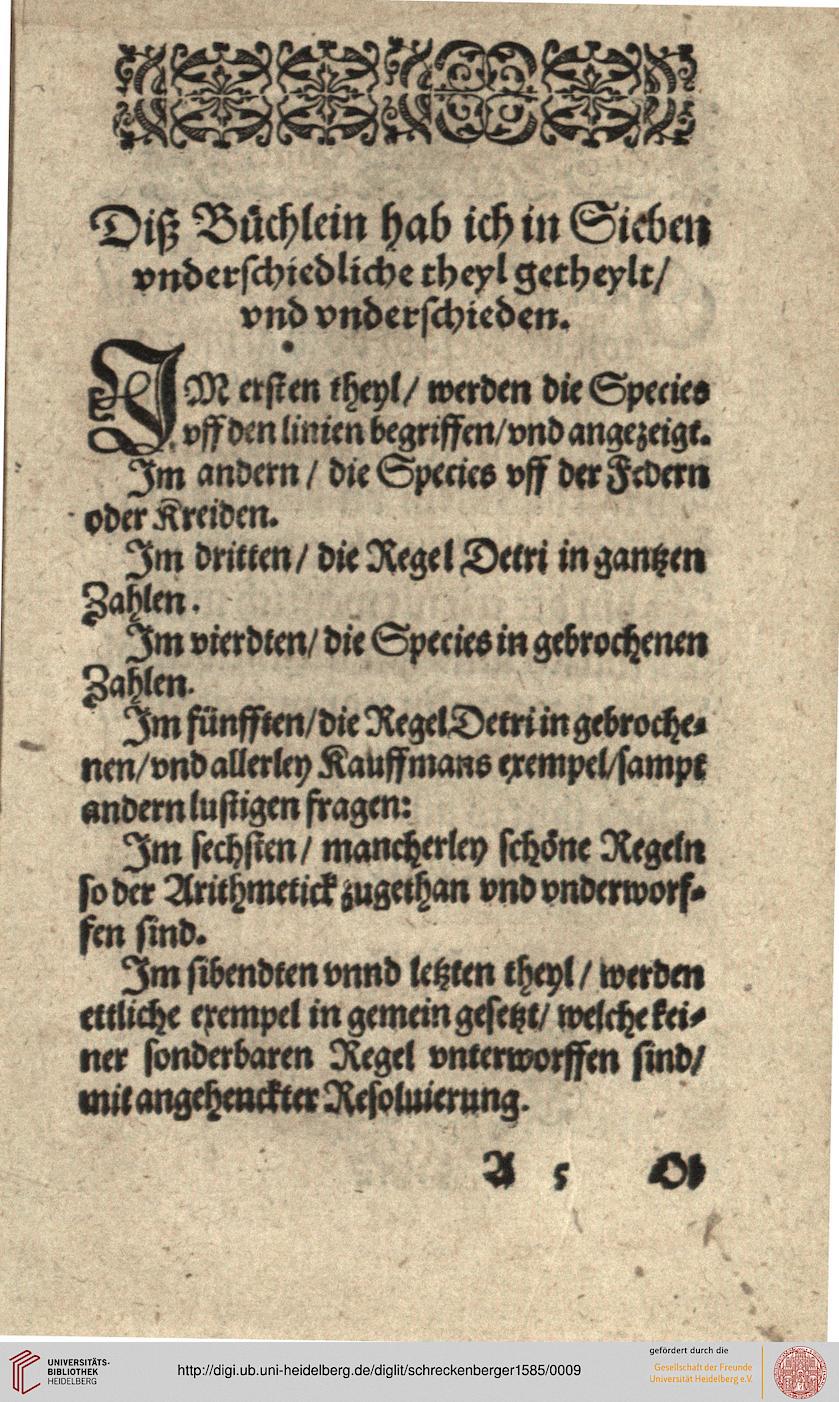 Diß Büchlein hab ich in Sieben
vnderschiedliche theyl getheylt/
vnd vnderschieden.
IM ersten theyl/ werden die Species
vff den linien begriffen/vnd angezeigt.
Im andern / die Species vff der Federn
oder Kreiden.
Im dritten/ die Regel Detri in gantzen
Zahlen.
Im vierdten/ die Species in gebrochenen
Zahlen.
Im fünfften/die Regel Detri in gebroche⸗
nen/vnd allerley Kauffmans exempel/sampt
andern lustigen fragen:
Im sechsten/ mancherley schöne Regeln
so der Arithmetick zugethan vnd vnderworf⸗
fen sind.
Im sibendten vnnd letzten theyl/ werden
ettliche exempel in gemein gesetzt/ welche kei⸗
ner sonderbaren Regel vnterworffen sind/
mit angehenckter Resoluierung.
A 5 Ob
UNIVERSITÄTS-
BIBLIOTHEK
HEIDELBERG
http://digi.ub.uni-heidelberg.de/diglit/schreckenberger1585/0009
gefördert durch die
Gesellschaft der Freunde
Universität Heidelberg e.V.